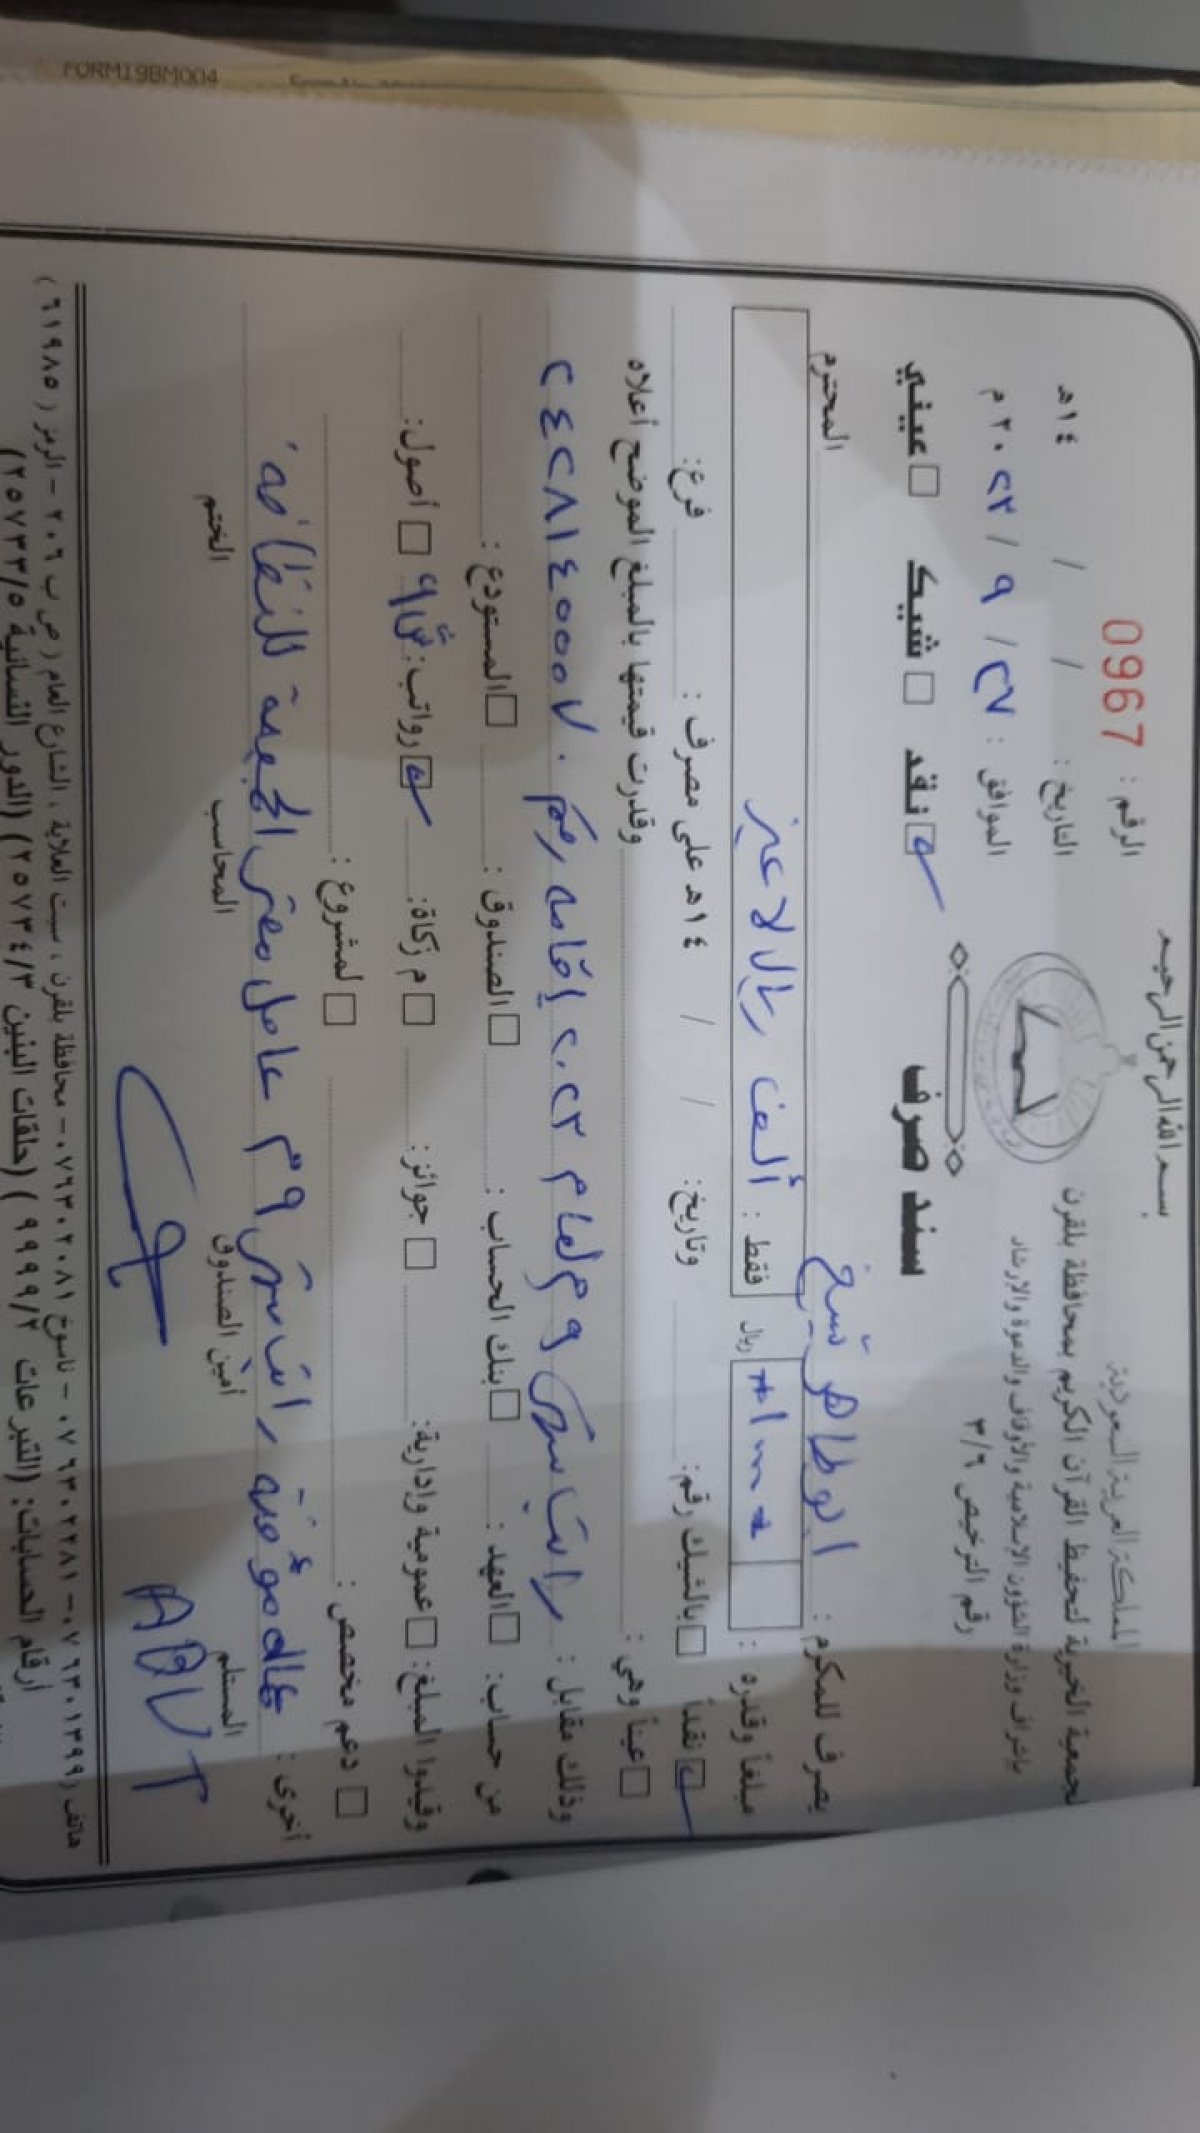 FORM19BM004
بسم الله الرحمن الرحيم
المملكة العربية السعودية
الجمعية الخيرية لتحفيظ القرآن الكريم بمحافظة بلقرن
بإشراف وزارة الشؤون الإسلامية والأوقاف والدعوة والإرشاد
رقم الترخيص ٣/٦
الرقم : 0967
التاريخ : / / ١٤هـ
الموافق : ٢٧ / ٩ / ٢٠٢٣ م
سند صرف
نقد شيك عيني
يصرف للمكرم : ابو طاهر شيخ المحترم
مبلغاً وقدره : ريال فقط : ألف ريال لاغير
نقداً بالشيك رقم: وتاريخ: / / ١٤هـ على مصرف : فرع:
عيناً وهي : وقدرت قيمتها بالمبلغ الموضح أعلاه
وذلك مقابل : راتب شهر ٩ م لعام ٢٠٢٣ إقامه رقم ٢٤٢٨١٤٥٥٥٧
من حساب: العهد : بنك الحساب : الصندوق : المستودع :
وقيدوا المبلغ: عمومية وإدارية: جوائز: م زكاة: رواتب: ش٩ أصول:
دعم مخصص : لمشروع :
أخرى : راتب شهر ٩ م عامل مقر الجمعية للنظافه
المستلم أمين الصندوق المحاسب الختم
هاتف ( ٠٧٦٣٠١٣٩٩ - ٠٧٦٣٠٢٢٨١ - ناسوخ ٠٧٦٣٠٢٠٨١ - محافظة بلقرن ، سبت العلاية ، الشارع العام ( ص ب ٢٠٦ - الرمز ( ٦١٩٨٥ )
أرقام الحسابات: (التبرعات ٩٩٩٩/٢ ) (حلقات البنين ٢٥٧٣٤/٣) (الدور النسائية ٢٥٧٣٣/٥)